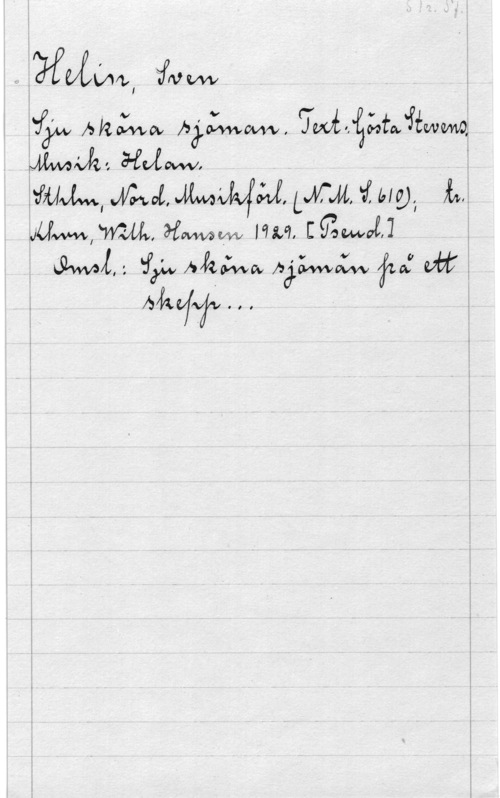 Helin, Sven
Sju sköna sjöman. Text: Gösta Stevens.
Musik: Helan.
Sthlm, Nord. Musikförl. (N.M.S. 610); tr.
Khvn, Wilh. Hansen 1929. [Pseud.]
Omsl.: Sju sköna sjömän på ett
skepp...